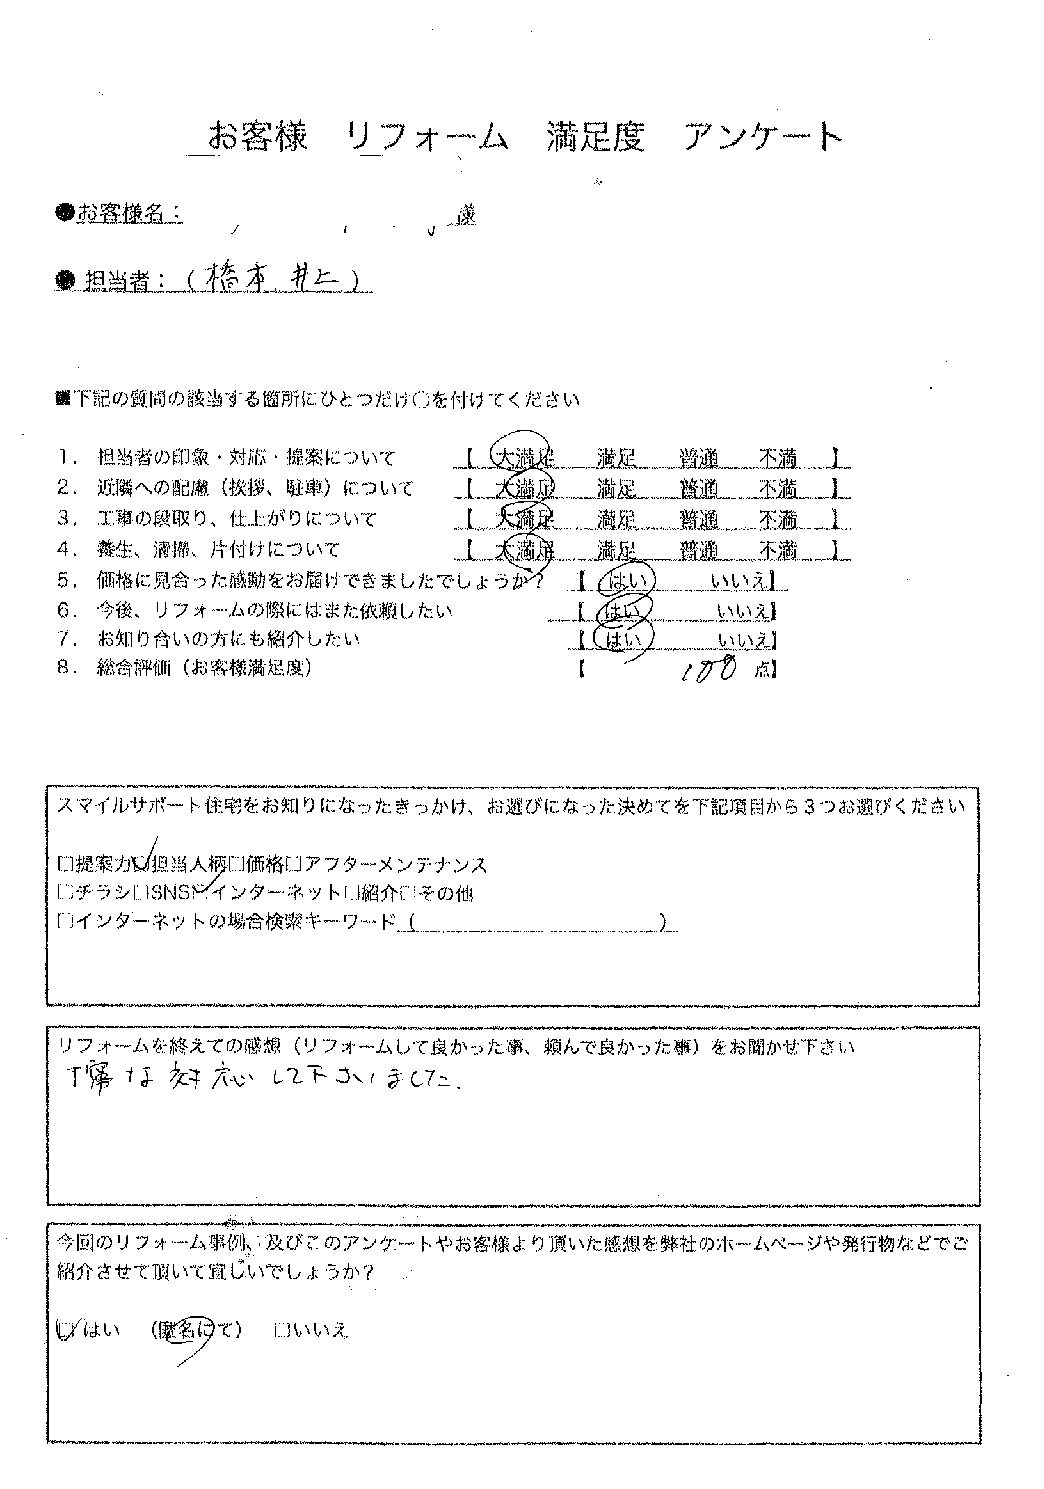 お客様 リフォーム 満足度 アンケート
●お客様名： 様
●担当者：（橋本 井上）
■下記の質問の該当する箇所にひとつだけ〇を付けてください
1. 担当者の印象・対応・提案について 【 大満足 満足 普通 不満 】
2. 近隣への配慮（挨拶、駐車）について 【 大満足 満足 普通 不満 】
3. 工事の段取り、仕上がりについて 【 大満足 満足 普通 不満 】
4. 養生、清掃、片付けについて 【 大満足 満足 普通 不満 】
5. 価格に見合った感動をお届けできましたでしょうか？ 【 はい いいえ】
6. 今後、リフォームの際にはまた依頼したい 【 はい いいえ】
7. お知り合いの方にも紹介したい 【 はい いいえ】
8. 総合評価（お客様満足度） 【 100 点】
スマイルサポート住宅をお知りになったきっかけ、お選びになった決めてを下記項目から3つお選びください
□提案力☑担当人柄□価格□アフターメンテナンス
□チラシ□SNS☑インターネット□紹介□その他
□インターネットの場合検索キーワード（ ）
リフォームを終えての感想（リフォームして良かった事、頼んで良かった事）をお聞かせ下さい
丁寧な対応して下さいました.
今回のリフォーム事例、及びこのアンケートやお客様より頂いた感想を弊社のホームページや発行物などでご
紹介させて頂いて宜しいでしょうか？
☑はい （匿名にて） □いいえ